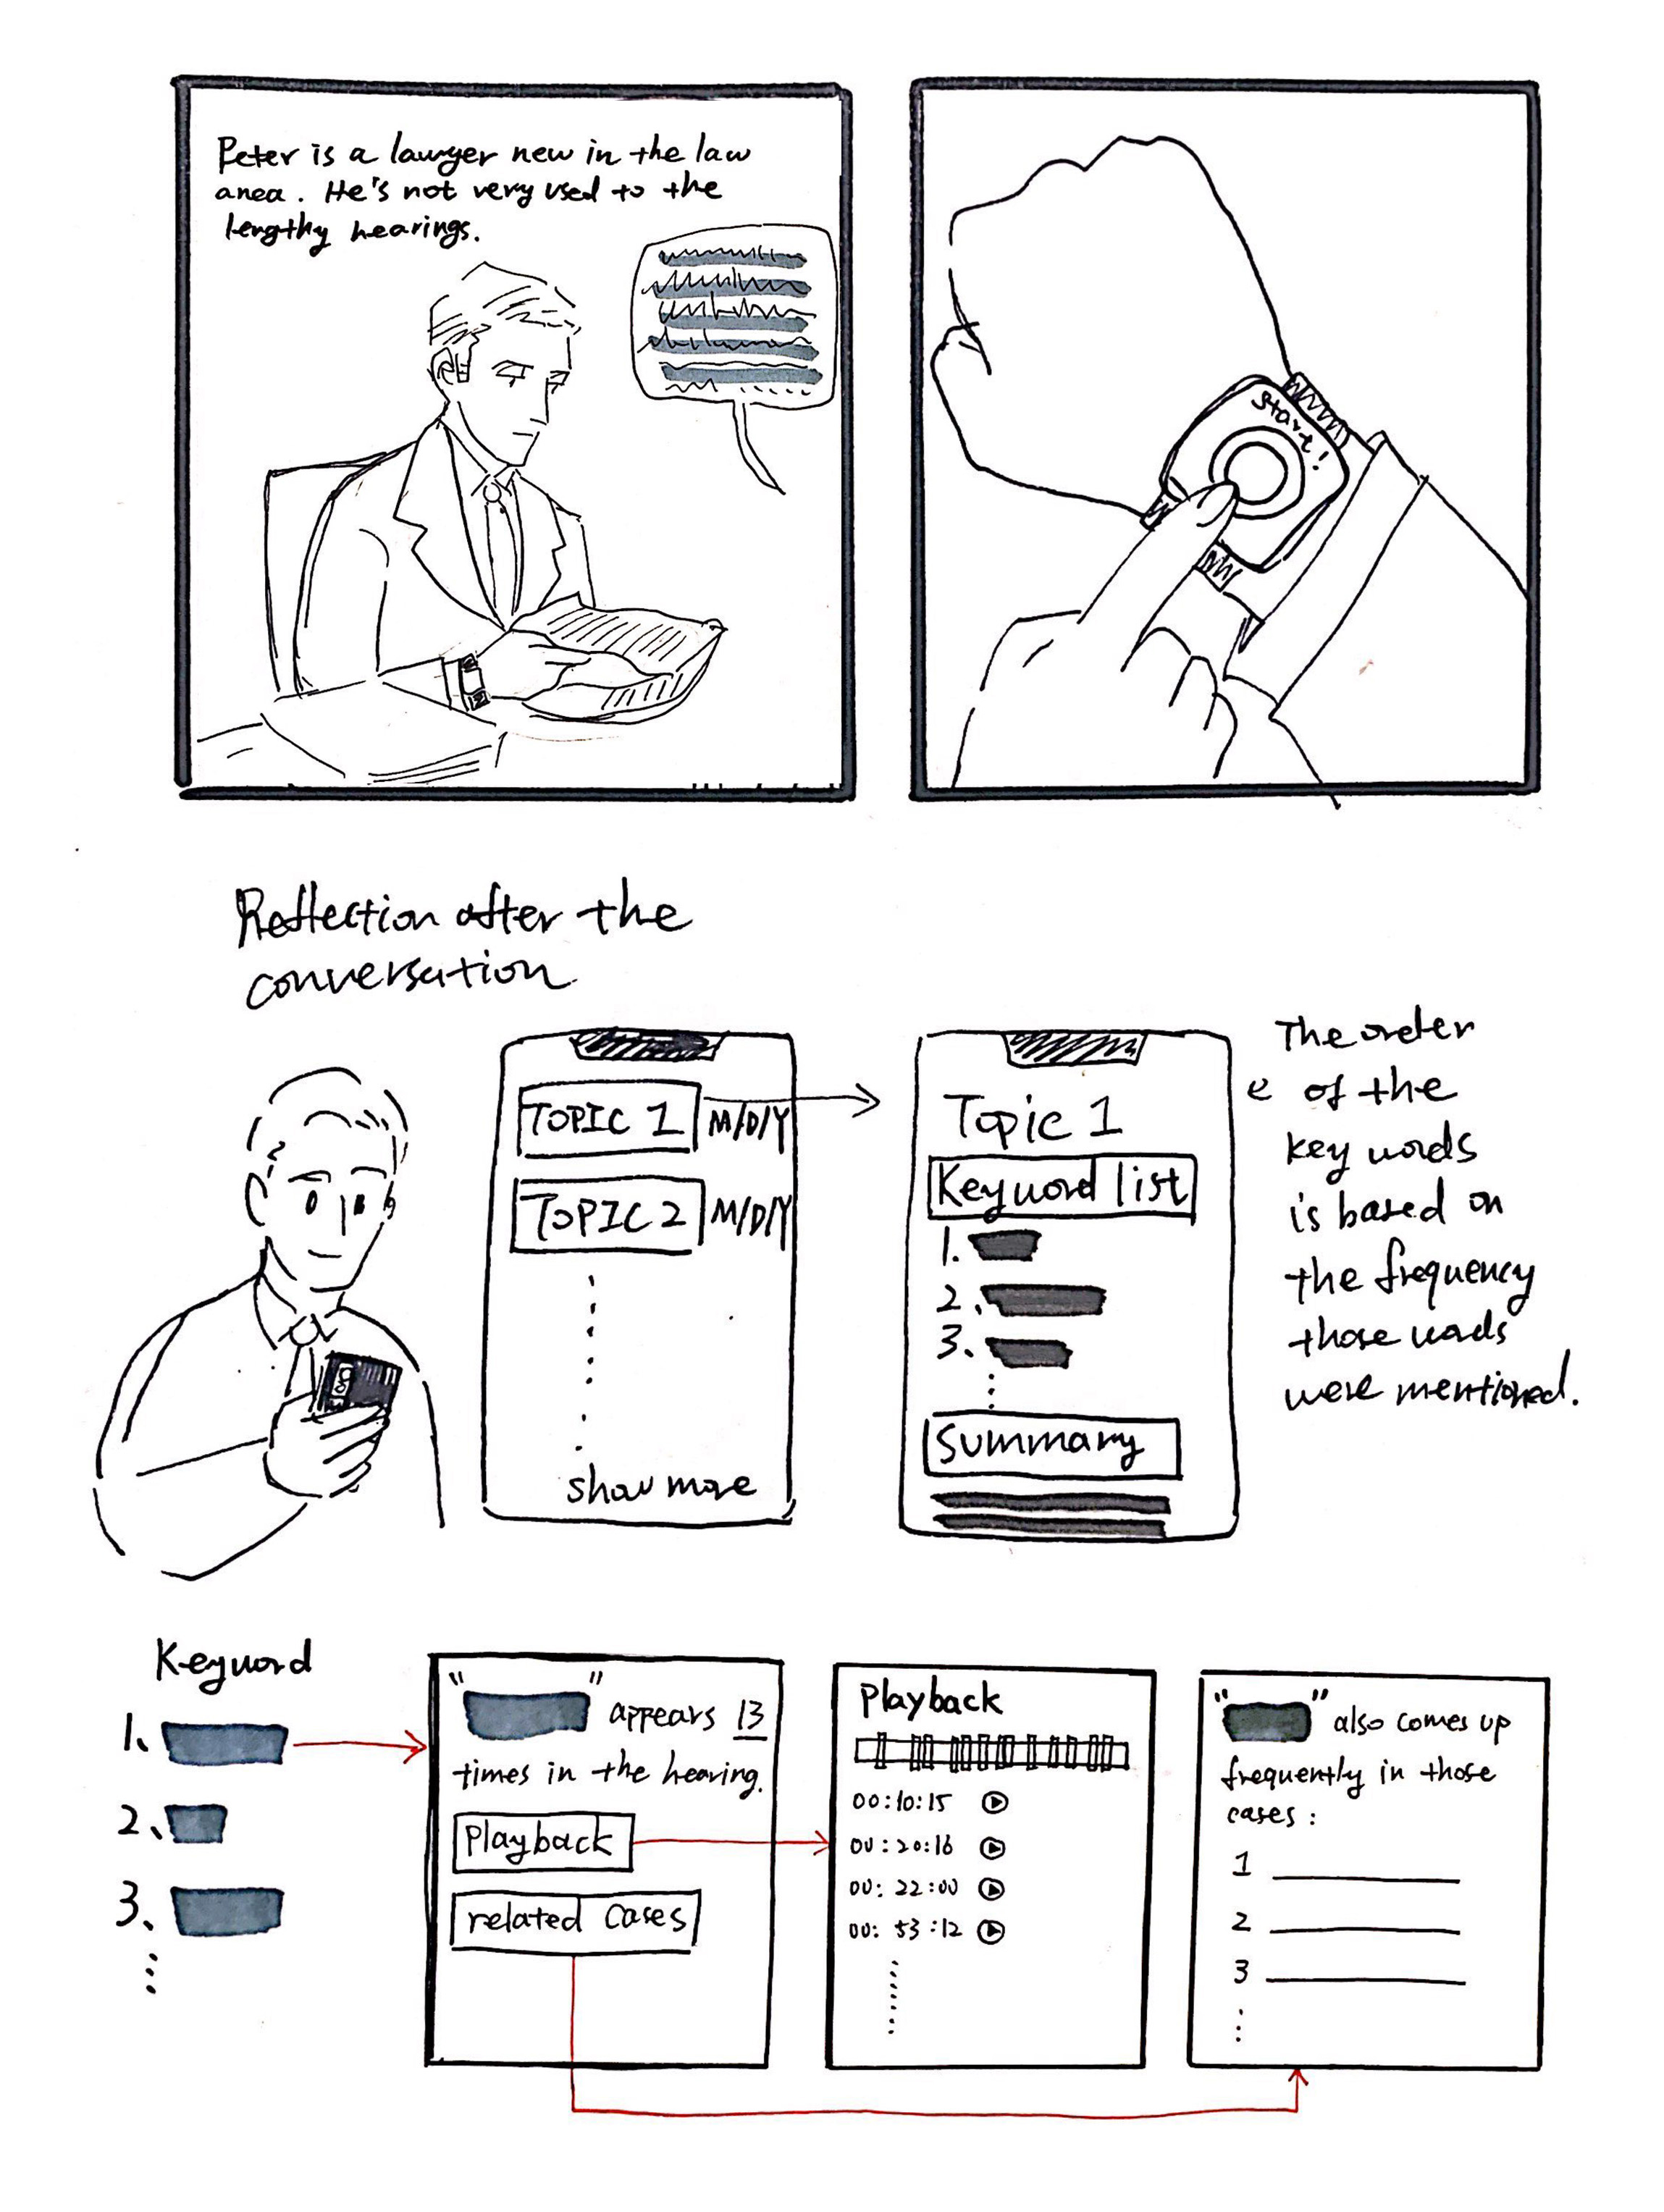 Peter is a lawyer new in the law
anea. He's not very used to the
lengthy hearings.
Start!
Reflection after the
conversation
TOPIC 1 M/D/Y
TOPIC 2 M/D/Y
show more
Topic 1
Keyword list
1.
2.
3.
Summary
The order
e of the
key words
is based on
the frequency
those words
were mentioned.
Keyword
1、
2、
3、
" " appears 13
times in the hearing.
Playback
related cases
Playback
00:10:15
00:20:16
00:22:00
00:53:12
" " also comes up
frequently in those
cases:
1
2
3